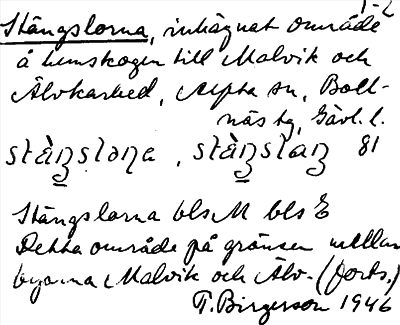 1-2
Stängslorna, inhägnat område
å hemskogen till Malvik och
Älvkarhed, Alfta sn, Boll-
näs tg, Gävl. l.
81
Stängslorna bls M bls E
Detta område på gränsen mellan
byarna Malvik och Älv- (forts.)
T. Birgerson 1946